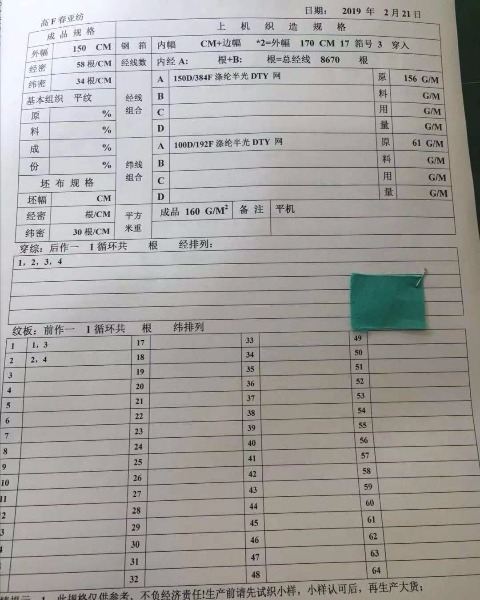 日期： 2019 年 2 月 21 日
高 F 春亚纺
成 品 规 格 上 机 织 造 规 格
外幅 150 CM 钢 筘 内幅 CM+边幅 *2=外幅 170 CM 17 筘号 3 穿入
经密 58 根/CM 经线数 内经 A: 根+B: 根=总经线 8670 根
纬密 34 根/CM 经线组合 A 150D/384F 涤纶半光 DTY 网 原 156 G/M
基本组织 平纹 B 料 G/M
原 % C 用 G/M
料 % D 量 G/M
成 % 纬线组合 A 100D/192F 涤纶半光 DTY 网 原 61 G/M
份 % B 料 G/M
坯 布 规 格 C 用 G/M
坯幅 CM D 量 G/M
经密 根/CM 平方米重 成品 160 G/M² 备 注 平机
纬密 30 根/CM
穿综：后作一 1 循环共 根 经排列：
1，2，3，4
纹板：前作一 1 循环共 根 纬排列
1 1，3 17 33 49
2 2，4 18 34 50
3 19 35 51
4 20 36 52
5 21 37 53
6 22 38 54
7 23 39 55
8 24 40 56
9 25 41 57
10 26 42 58
11 27 43 59
2 28 44 60
3 29 45 61
30 46 62
31 47 63
32 48 64
提示 1、此规格仅供参考，不负经济责任!生产前请先试织小样，小样认可后，再生产大货；